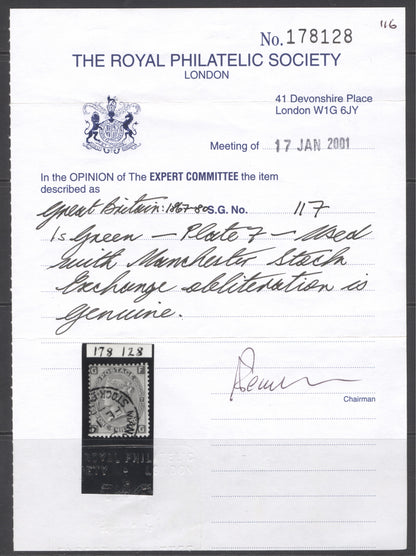 116
No. 178128
THE ROYAL PHILATELIC SOCIETY
LONDON
41 Devonshire Place
London W1G 6JY
Meeting of 17 JAN 2001
In the OPINION of The EXPERT COMMITTEE the item
described as
Great Britain: 1867-80 S.G. No. 117
1s Green – Plate 7 – Used
with Manchester Stock
Exchange obliteration is
genuine.
178 128
Chairman
ROYAL PHILATELIC